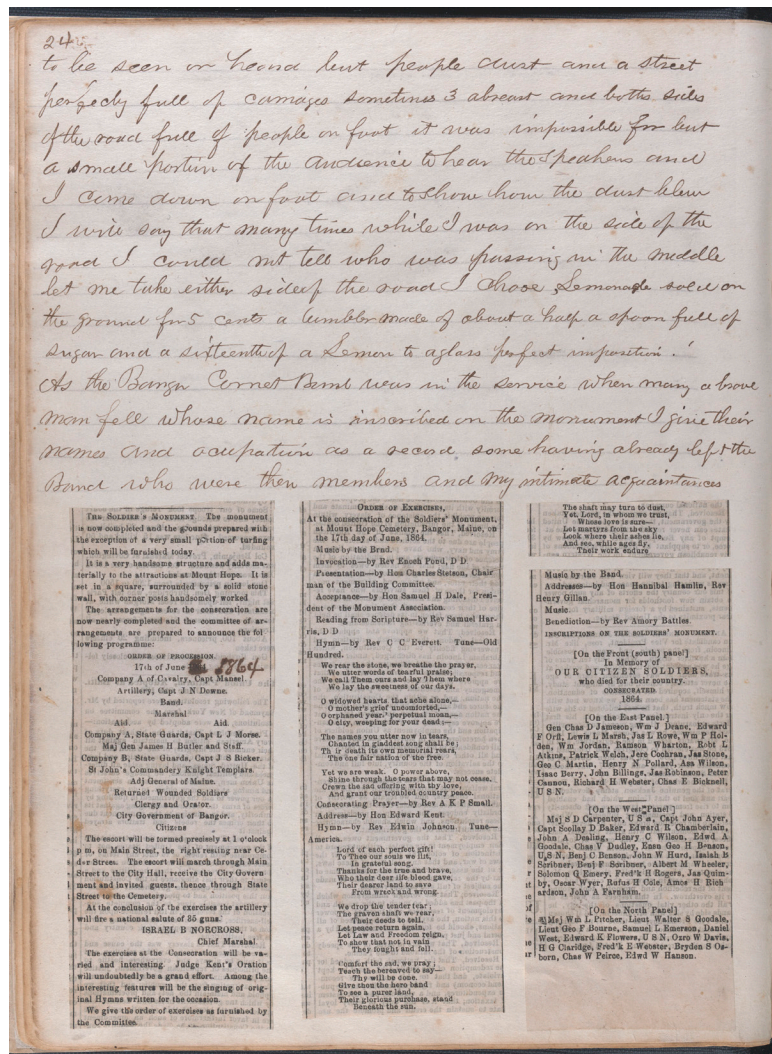 24
to be seen or heard but people dust and a street
perfecly full of carriages sometimes 3 abreast and boths sides
of the road full of people on foot it was impossible for but
a small portion of the audience to hear the Speakers and
I come down on foot and to Show how the dust blew
I will say that many times while I was on the side of the
road I could not tell who was passing in the middle
let me take either side of the road I chose Lemonade sold on
the ground for 5 cents a tumbler made of about a half a spoon full of
sugar and a sixteenth of a Lemon to a glass perfect imposition !
As the Bangor Cornet Band was in the service when many a brave
man fell whose name is inscribed on the monument I give their
names and ocupation as a record some having already left the
Band who were then members and my intimate acquaintances
THE SOLDIER'S MONUMENT. The monument
is now completed and the grounds prepared with
the exception of a very small portion of turfing
which will be furnished today.
It is a very handsome structure and adds ma-
terially to the attractions at Mount Hope. It is
set in a square, surrounded by a solid stone
wall, with corner posts handsomely worked
The arrangements for the consecration are
now nearly completed and the committee of ar-
rangements are prepared to announce the fol
lowing programme:
ORDER OF PROCESSION.
17th of June 1864
Company A of Cavalry, Capt Mansel.
Artillery, Capt J N Downe.
Band.
Marshal
Aid. Aid.
Company A, State Guards, Capt L J Morse.
Maj Gen James H Butler and Staff.
Company B, State Guards, Capt J S Ricker.
St John's Commandery Knight Templars.
Adj General of Maine.
Returned Wounded Soldiers
Clergy and Orator.
City Government of Bangor.
Citizens
The escort will be formed precisely at 1 o'clock
p m, on Main Street, the right resting near Ce-
dar Street. The escort will march through Main
Street to the City Hall, receive the City Govern
ment and invited guests, thence through State
Street to the Cemetery.
At the conclusion of the exercises the artillery
will fire a national salute of 35 guns.
ISRAEL B NORCROSS,
Chief Marshal.
The exercises at the Consecration will be va-
ried and interesting. Judge Kent's Oration
will undoubtedly be a grand effort. Among the
interesting features will be the singing of orig-
inal Hymns written for the occasion.
We give the order of exercises as furnished by
the Committee.
ORDER OF EXERCISES,
At the consecration of the Soldiers' Monument,
at Mount Hope Cemetery, Bangor, Maine, on
the 17th day of June, 1864.
Music by the Band.
Invocation—by Rev Enoch Pond, D D
Presentation—by Hon Charles Stetson, Chair
man of the Building Committee.
Acceptance—by Hon Samuel H Dale, Presi-
dent of the Monument Association.
Reading from Scripture—by Rev Samuel Har-
ris, D D
Hymn—by Rev C C Everett. Tune—Old
Hundred.
We rear the stone, we breathe the prayer,
We utter words of tearful praise;
We call Them ours and lay Them where
We lay the sweetness of our days.
O widowed hearts that ache alone,—
O mother's grief uncomforted,—
O orphaned years' perpetual moan,—
O city, weeping for your dead;—
The names you utter now in tears,
Chanted in gladdest song shall be;
Their death its own memorial rears,
The one fair nation of the free.
Yet we are weak. O power above,
Shine through the tears that may not cease,
Crown the sad offering with thy love,
And grant our troubled country peace.
Consecrating Prayer—by Rev A K P Small.
Address—by Hon Edward Kent.
Hymn—by Rev Edwin Johnson. Tune—
America.
Lord of each perfect gift!
To Thee our souls we lift,
In grateful song.
Thanks for the true and brave,
Who their dear life blood gave,
Their dearer land to save
From wreck and wrong.
We drop the tender tear;
The graven shaft we rear,
Their deeds to tell.
Let peace return again,
Let Law and Freedom reign,
To show that not in vain
They fought and fell.
Comfort the sad, we pray;
Teach the bereaved to say—
Thy will be done.
Give thou the hero band
To see a purer land,
Their glorious purchase, stand
Beneath the sun.
The shaft may turn to dust,
Yet, Lord, in whom we trust,
Whose love is sure—
Let martyrs from the sky
Look where their ashes lie,
And see, while ages fly,
Their work endure
Music by the Band.
Addresses—by Hon Hannibal Hamlin, Rev
Henry Gillan.
Music.
Benediction—by Rev Amory Battles.
INSCRIPTIONS ON THE SOLDIERS' MONUMENT.
[On the Front (south) panel]
In Memory of
OUR CITIZEN SOLDIERS,
who died for their country.
CONSECRATED
1864.
[On the East Panel.]
Gen Chas D Jameson, Wm J Drane, Edward
F Orff, Lewis L Marsh, Jas L Rowe, Wm P Hol-
den, Wm Jordan, Ramson Wharton, Robt L
Atkins, Patrick Welch, Jere Cochran, Jas Stone,
Geo C Martin, Henry N Pollard, Asa Wilson,
Isaac Berry, John Billings, Jas Robinson, Peter
Cannou, Richard H Webster, Chas E Bicknell,
U S N.
[On the West Panel]
Maj S D Carpenter, U S A, Capt John Ayer,
Capt Scollay D Baker, Edward R Chamberlain,
John A Dealing, Henry C Wilson, Edwd A
Goodale, Chas V Dudley, Ensn Geo H Benson,
U S N, Benj C Benson, John W Hurd, Isaiah B
Scribner, Benj F Scribner, Albert M Wheeler,
Solomon G Emery, Fred'k H Rogers, Jas Quim-
by, Oscar Wyer, Rufus H Cole, Amos H Rich
ardson, John A Farnham.
[On the North Panel]
Maj Wm L Pitcher, Lieut Walter S Goodale,
Lieut Geo F Bourne, Samuel L Emerson, Daniel
West, Edward K Flowers, U S N, Orro W Davis,
H G Claridge, Fred'k E Webster, Bryden S Os-
born, Chas W Peirce, Edwd W Hanson.